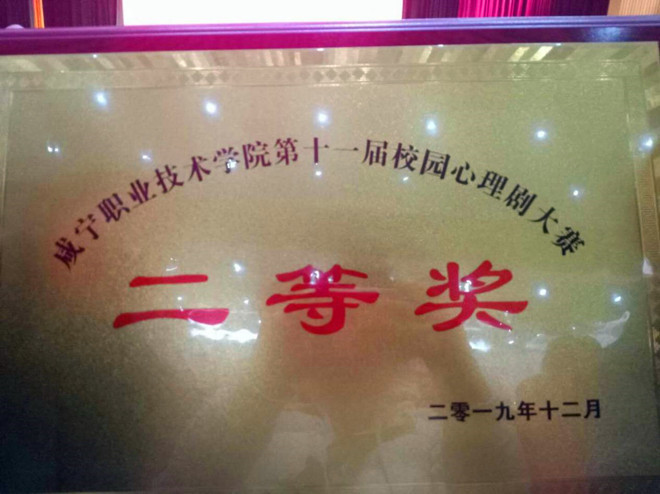 咸宁职业技术学院第十一届校园心理剧大赛
二等奖
二零一九年十二月